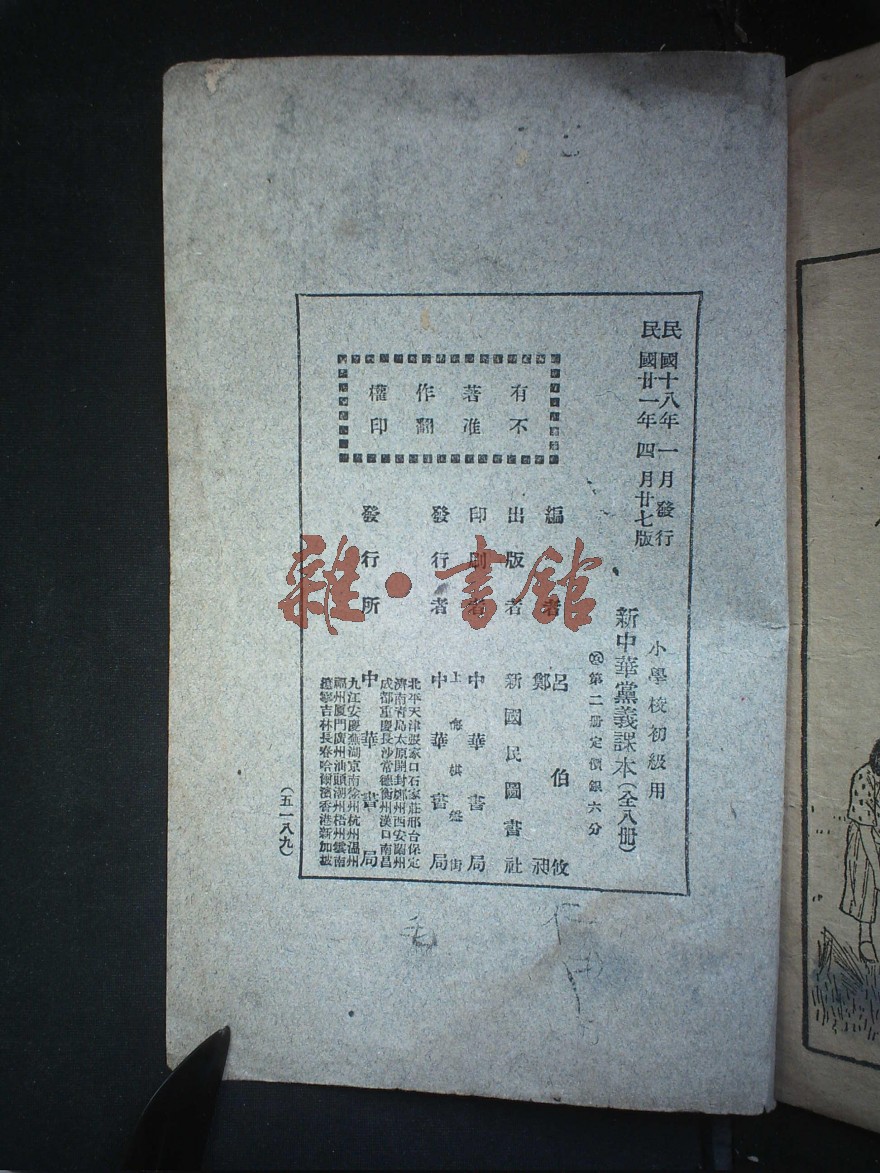 民國十八年一月發行
民國廿一年四月廿七版
小學校初級用
新中華黨義課本(全八冊)
第二冊定價銀六分
有著作權
不准翻印
編者
呂伯攸
鄭昶
出版者
新國民圖書社
印刷者
中華書局
發行者
上海棋盤街
中華書局
發行所
中華書局
北平天津張家口石家莊邢台保定
濟南青島太原開封鄭州西安蘭州
成都重慶長沙常德衡州漢口南昌
九江安慶蕪湖南京徐州杭州溫州
福州廈門廣州汕頭潮州梧州雲南
遼寧吉林長春哈爾濱香港新加坡
(五一八九)
雜·書館